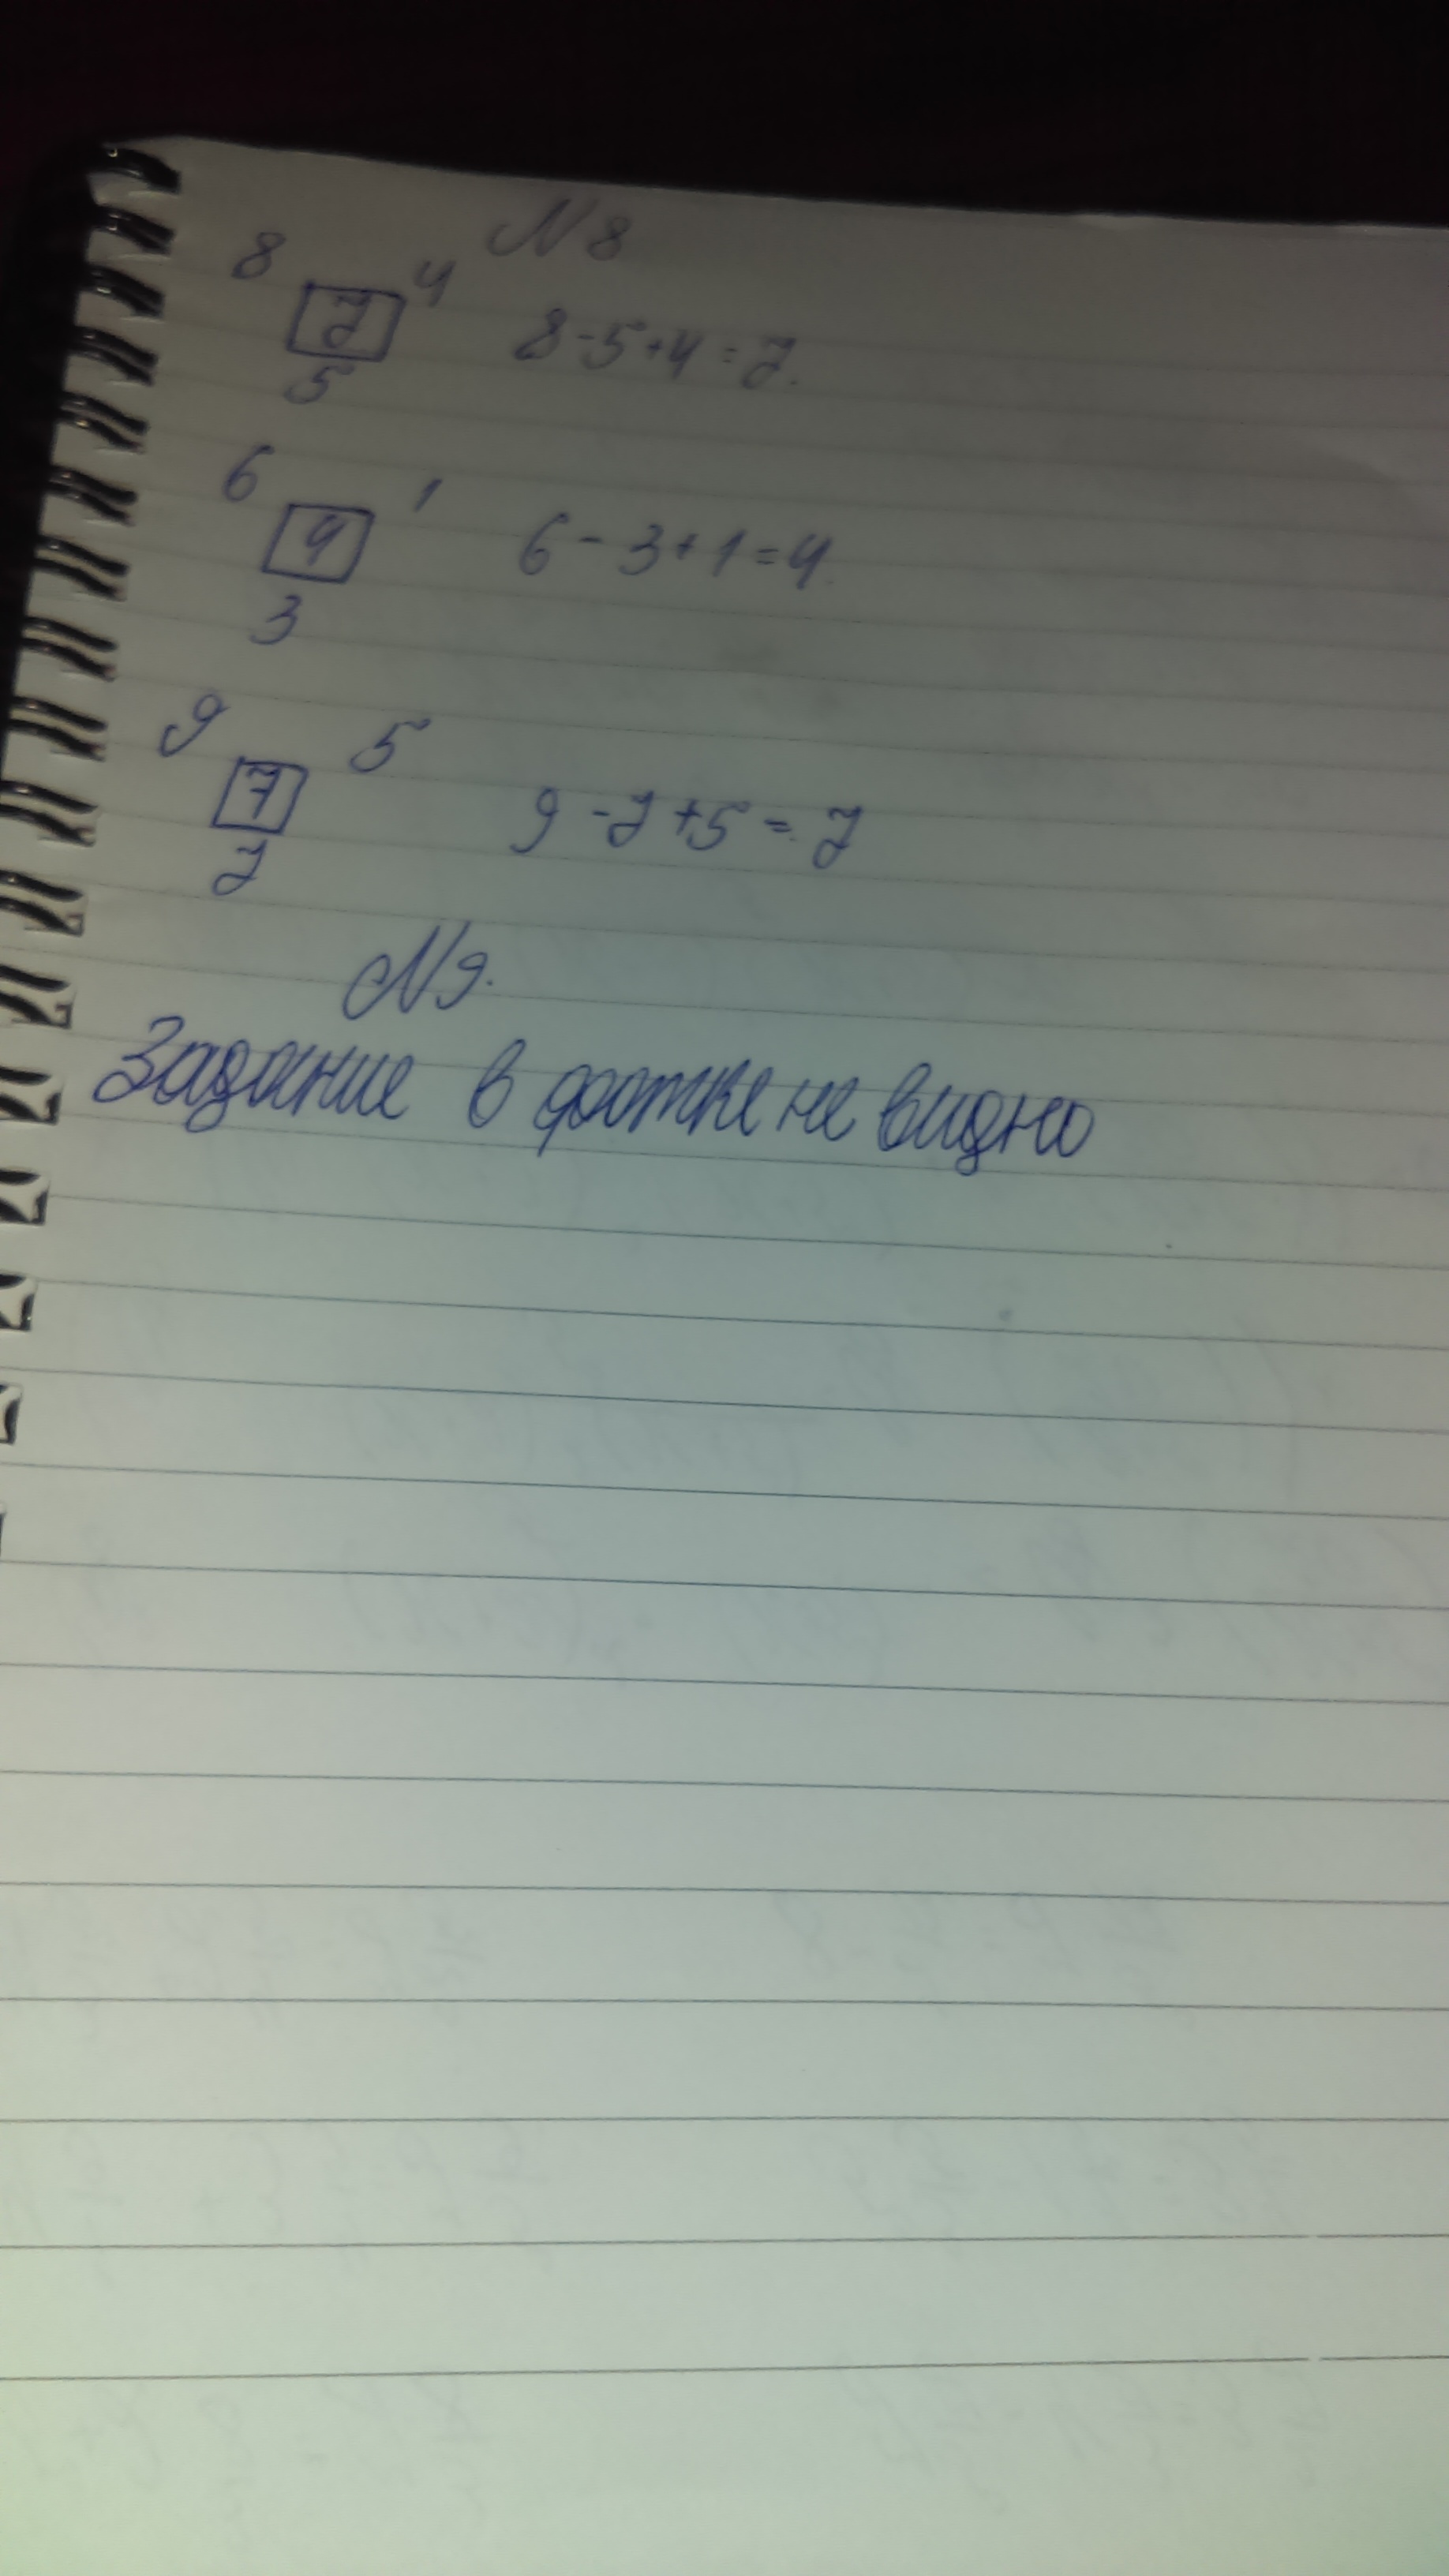 N 8
8 4
7 8-5+4=7.
5
6 1
4 6-3+1=4.
3
9 5
7 9-7+5=7
7
N9.
Задание в фотке не видно